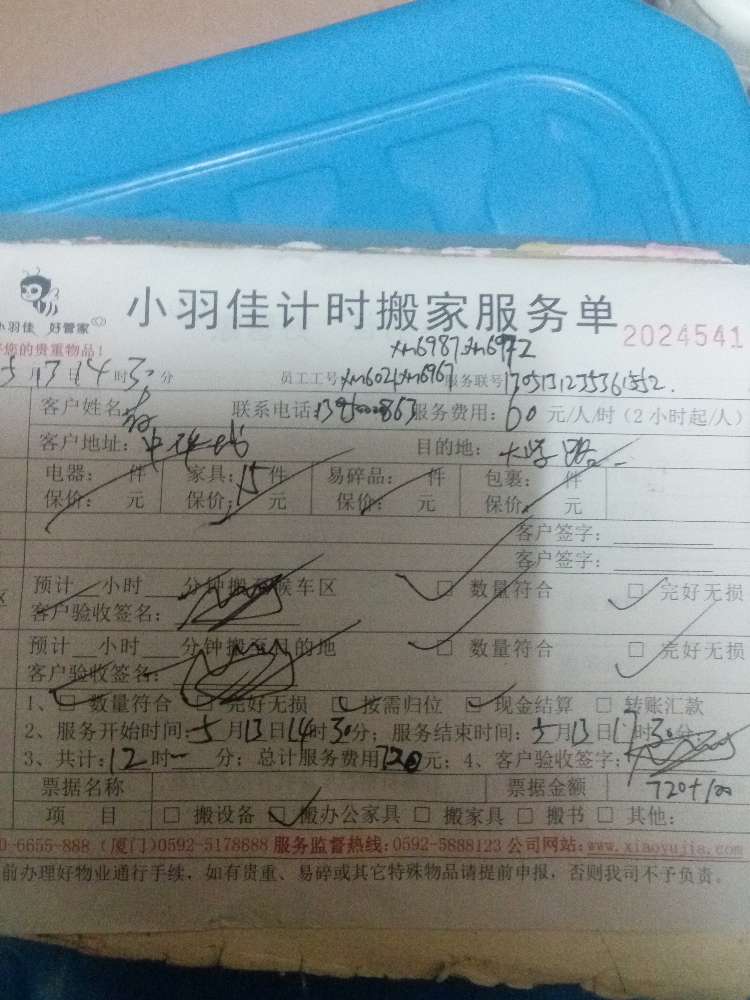 小羽佳计时搬家服务单
小羽佳 好管家
2024541
您的贵重物品！
xm6987 xm6972
5月13日14时30分 员工工号 xm6021 xm6967 服务联号 170513123536
客户姓名： 联系电话： 服务费用：60元/人/时（2小时起/人）
客户地址： 目的地：大学路
电器： 件 家具：15件 易碎品： 件 包裹： 件
保价： 元 保价： 元 保价： 元 保价： 元
客户签字：
客户签字：
区 预计 小时 分钟搬至候车区 □ 数量符合 □ 完好无损
客户验收签名：
预计 小时 分钟搬至目的地 □ 数量符合 □ 完好无损
客户验收签名：
1、□ 数量符合 □ 完好无损 □ 按需归位 □ 现金结算 □ 转账汇款
2、服务开始时间：5月13日14时30分；服务结束时间：5月13日17时30分
3、共计：12时 分；总计服务费用720元；4、客户验收签字：
票据名称 票据金额 720+100
项 目 □ 搬设备 □ 搬办公家具 □ 搬家具 □ 搬书 □ 其他：
0-6655-888（厦门）0592-5178688 服务监督热线：0592-5888123 公司网站：www.xiaoyujia.com
前办理好物业通行手续，如有贵重、易碎或其它特殊物品请提前申报，否则我司不予负责。